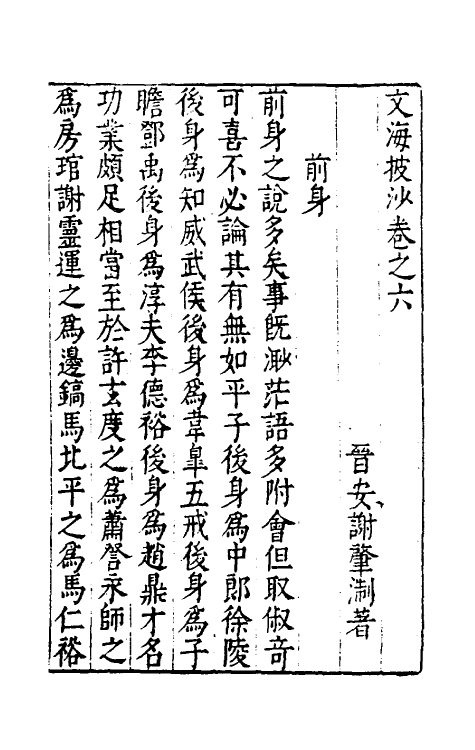 文海披沙卷之六
晉安謝肇淛著
前身
前身之說多矣事旣渺茫語多附會但取俶奇
可喜不必論其有無如平子後身爲中郎徐陵
後身爲知威武侯後身爲韋臯五戒後身爲子
瞻鄧禹後身爲淳夫李德裕後身爲趙鼎才名
功業頗足相當至於許玄度之爲蕭詧永師之
爲房琯謝靈運之爲邊鎬馬北平之爲馬仁裕